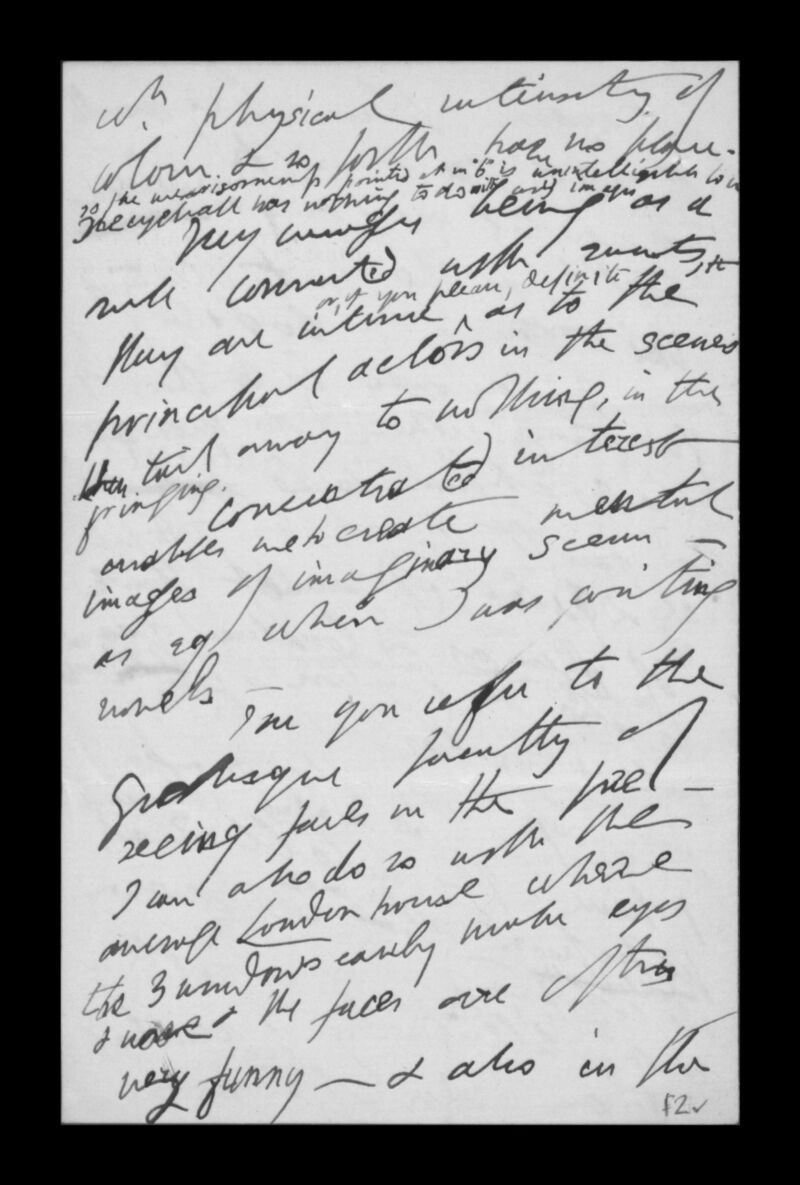 wh. physical intensity of
colour & so forth have no place.
so the measurements pointed at in 6 is unintelligible to me
The eyeball has nothing to do with my images
My images being as a
rule connected with events,
they are intense as to the
or, if you please, definite
principal actors in the scenes
then tail away to nothing, in the
fringing.
Concentrated interest
enables me to create mental
images of imaginary scenes —
as eg when I was writing
novels
you refer to the
Grotesque faculty of
seeing faces in the fire —
I can also do so with the
average London house where
the 3 windows easily make eyes
& nose & the faces are often
very funny — & also in the
f2v